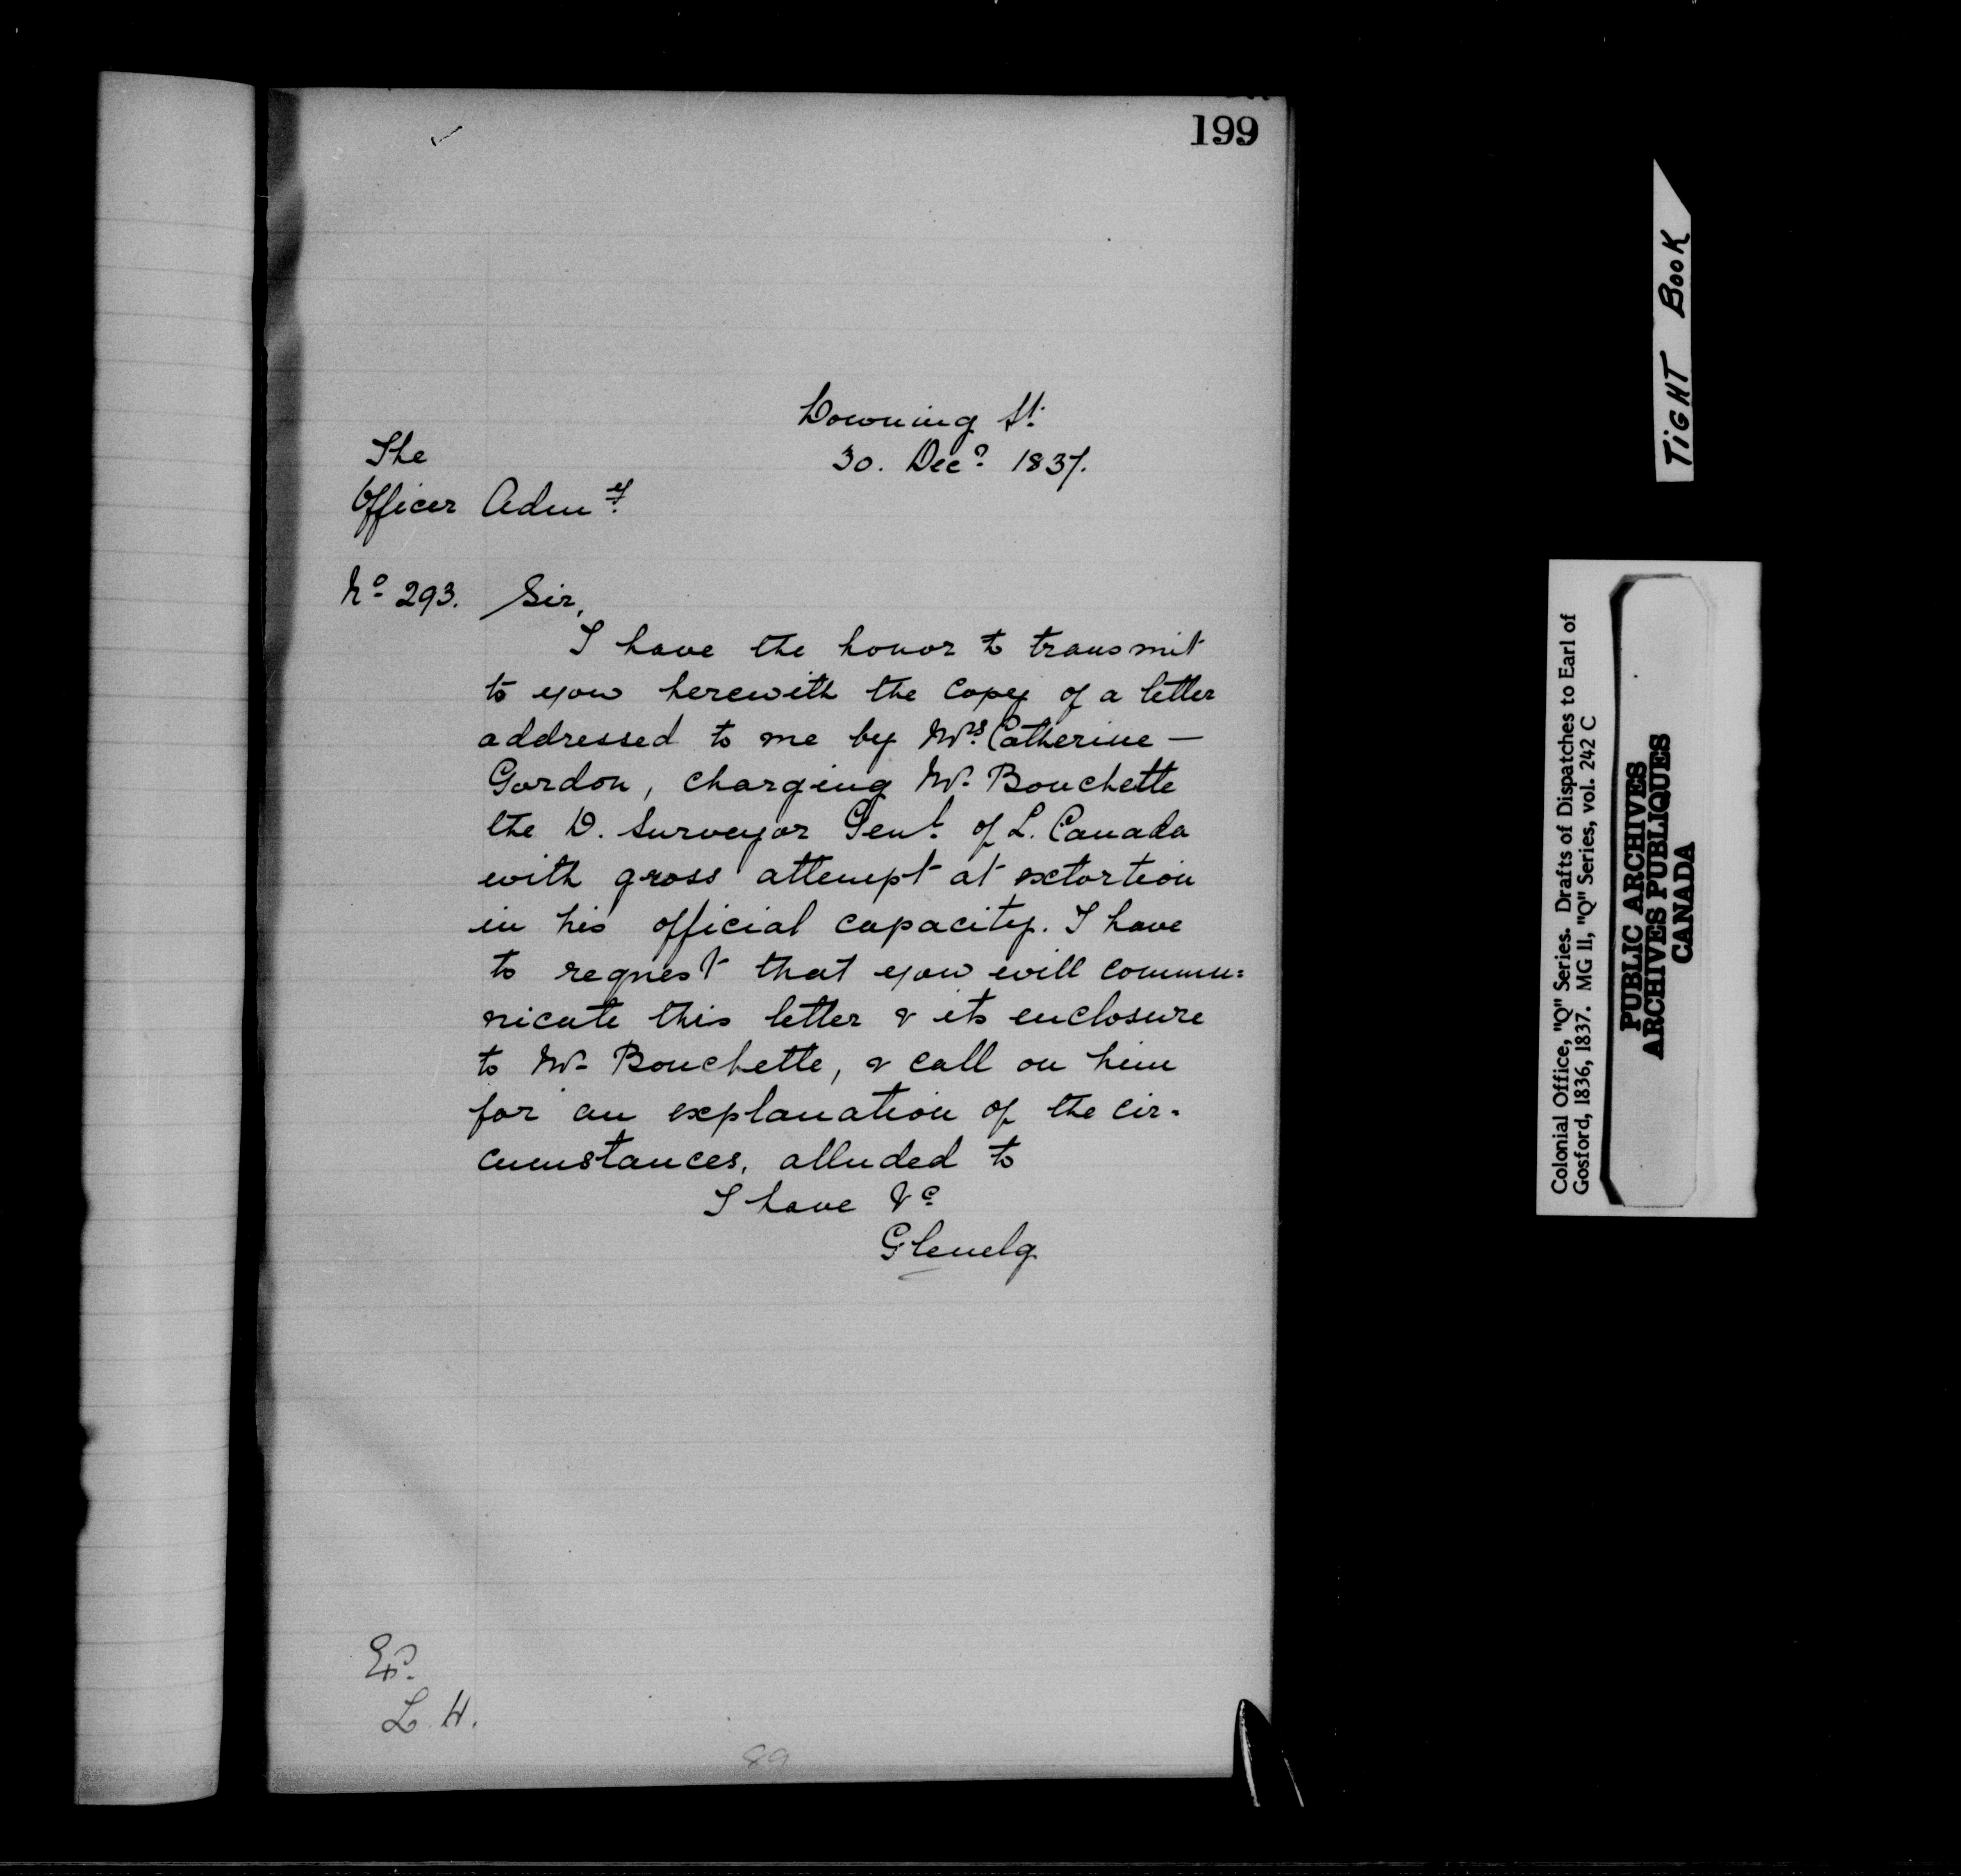 199
Downing St.
30. Decr 1837.
The
Officer Admg
No 293. Sir,
I have the honor to transmit
to you herewith the copy of a letter
addressed to me by Mrs Catherine —
Gordon, charging Mr. Bouchette
the D. Surveyor Genl. of L. Canada
with gross attempt at extortion
in his official capacity. I have
to request that you will commu=
nicate this letter & its enclosure
to Mr Bouchette, & call on him
for an explanation of the cir-
cumstances, alluded to
I have &c
Glenelg
L. H.
89
TIGHT BOOK
Colonial Office, "Q" Series. Drafts of Dispatches to Earl of
Gosford, 1836, 1837. MG II, "Q" Series, vol. 242 C
PUBLIC ARCHIVES
ARCHIVES PUBLIQUES
CANADA